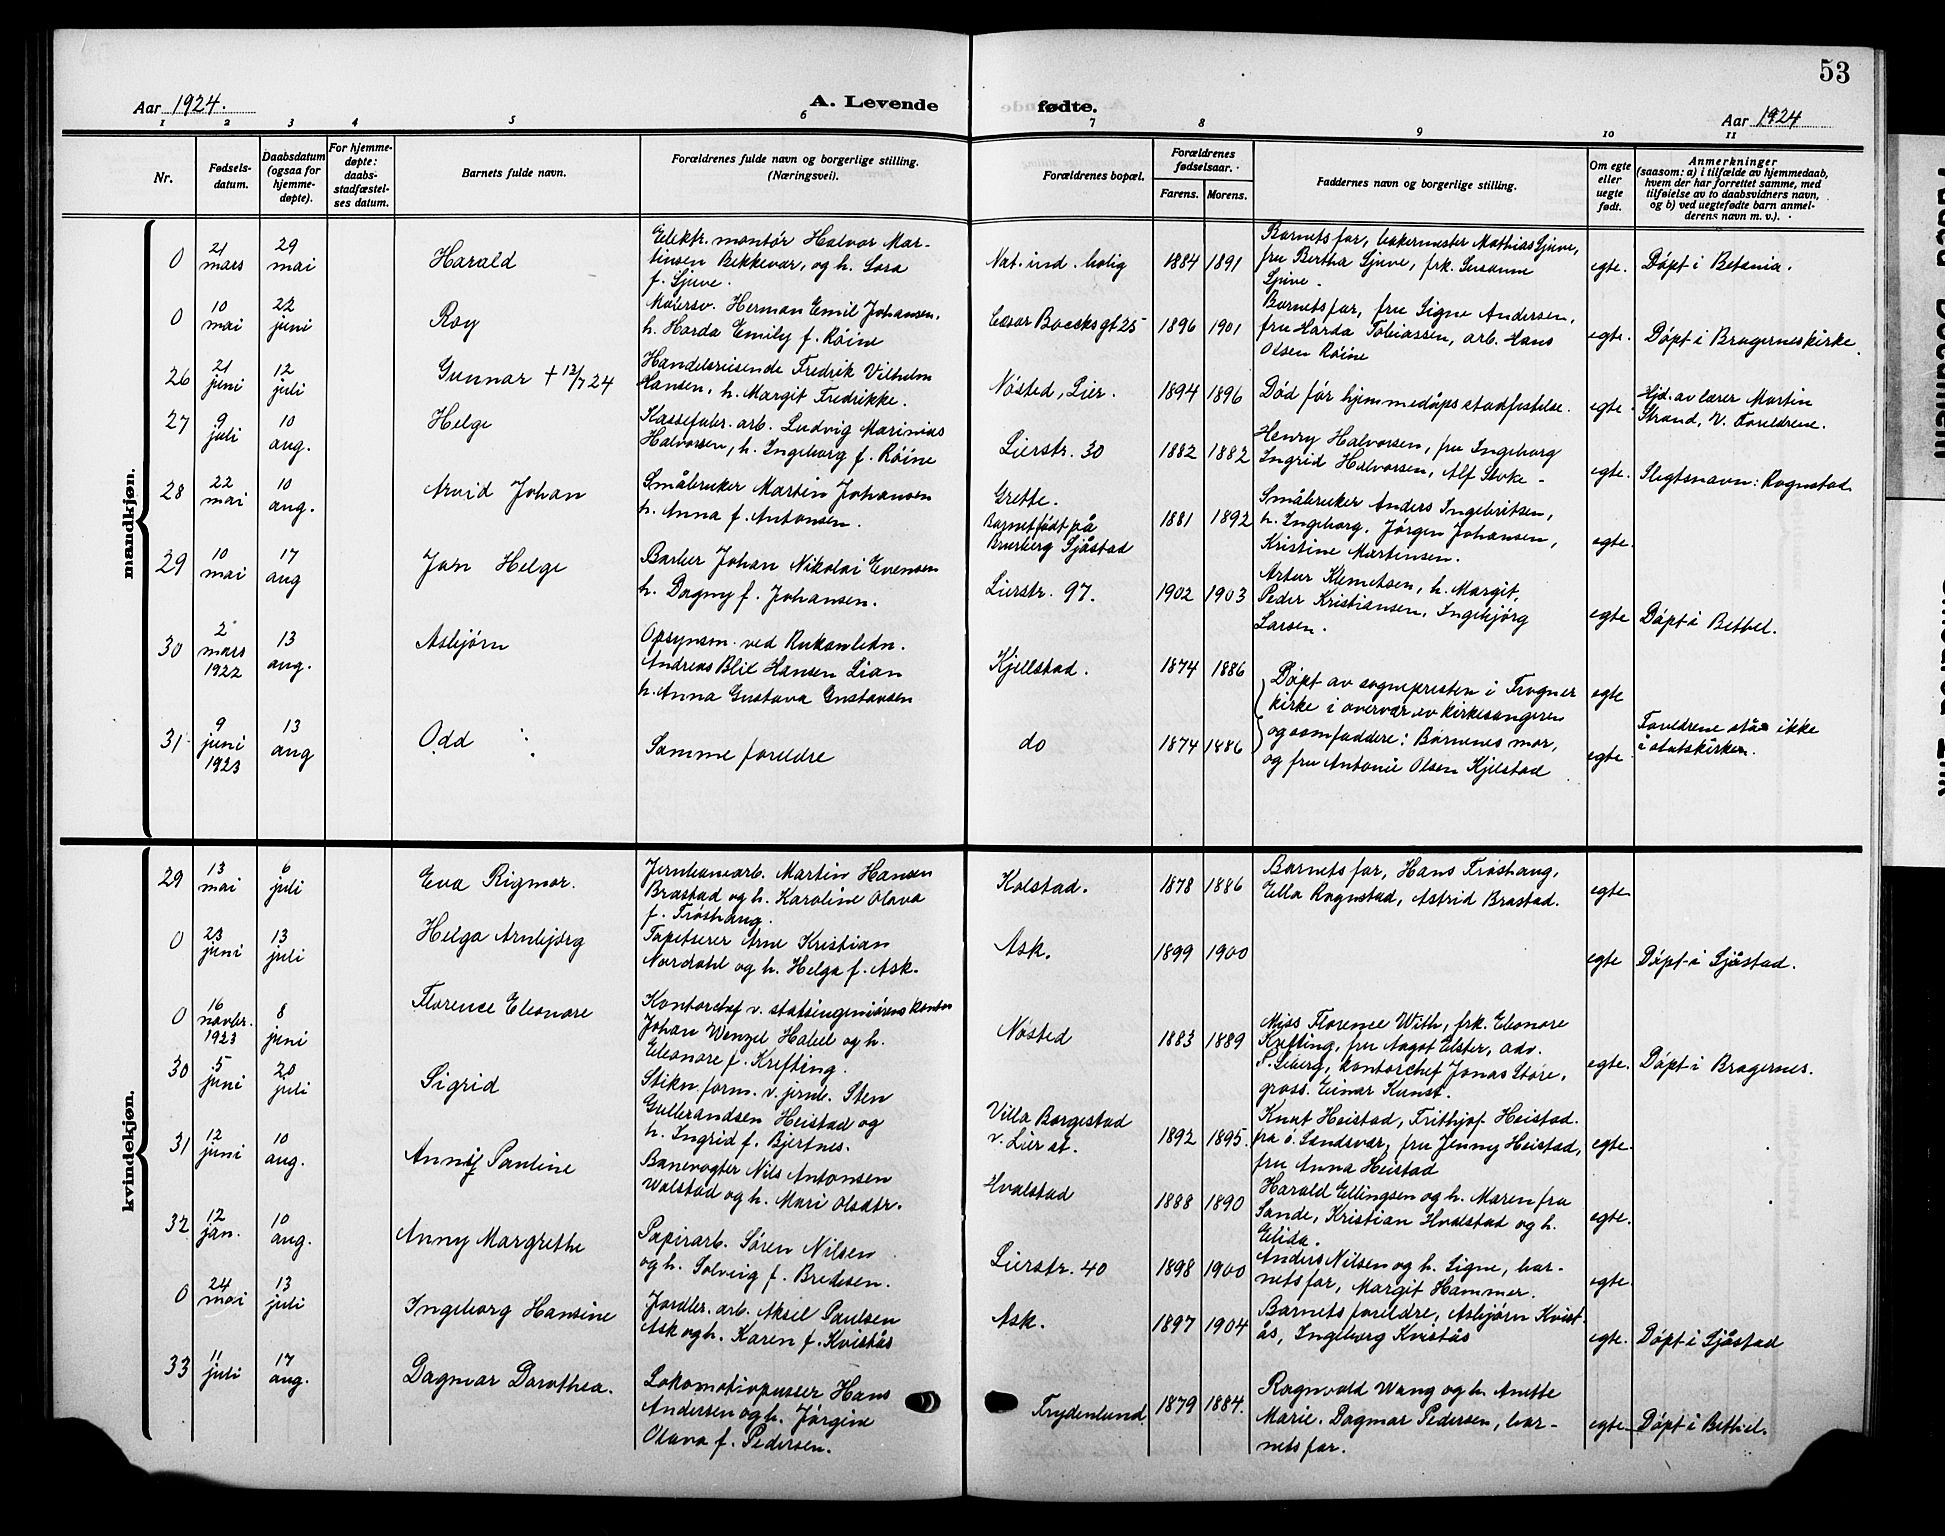 53
Aar 1924.
A. Levende fødte.
Aar 1924
1 2 3 4 5 6 7 8 9 10 11
Nr.
Fødsels-
datum.
Daabsdatum
(ogsaa for
hjemme-
døpte).
For hjemme-
døpte:
daabs-
stadfæstel-
ses datum.
Barnets fulde navn.
Forældrenes fulde navn og borgerlige stilling.
(Næringsvei).
Forældrenes bopæl.
Forældrenes
fødselsaar.
Farens. Morens.
Faddernes navn og borgerlige stilling.
Om egte
eller
uegte
født.
Anmerkninger
(saasom: a) i tilfælde av hjemmedaab,
hvem der har forrettet samme, med
tilføielse av to daabsvidners navn,
og b) ved uegtefødte barn anmel-
derens navn m. v.).
mandkjøn.
0
21
mars
29
mai
Harald
Elektr. montør Halvor Mar-
tinsen Bekkevar, og h. Sara
f. Sjuve.
Nat. ind. bolig
1884 1891
Barnets far, bakermester Mathias Sjuve,
fru Bertha Sjuve, frk. Susanne
Sjuve.
egte.
Døpt i Betania.
0
10
mai
22
juni
Roy
Malersv. Herman Emil Johansen,
h. Harda Emily f. Røine
Cæsar Boecks gt 25
1896 1901
Barnets far, fru Signe Andersen,
fru Harda Tobiassen, arb. Hans
Olsen Røine
egte.
Døpt i Bragernes kirke.
26
21
juni
12
juli
Gunnar + 12/7 24
Handelsreisende Fredrik Vilhelm
Hansen, h. Margit Fredrikke.
Nøsted, Lier.
1894 1896
Død før hjemmedåps stadfestelse.
egte.
Hjd. av lærer Martin
Strand, V. Foreldrene.
27
9
juli
10
aug.
Helge
Kassefabr. arb. Ludvig Marinius
Halvorsen, h. Ingeborg f. Røine
Lierstr. 30
1882 1882
Henry Halvorsen, fru Ingeborg
Ingrid Halvorsen, Alf Stoke -
egte.
Slegtsnavn: Rognstad
28
22
mai
10
aug.
Arvid Johan
Småbruker Martin Johansen
h. Anna f. Antonsen.
Grette.
Barnet født på
Bruberg Sjåstad
1881 1892
Småbruker Anders Ingebritsen,
h. Ingeborg, Jørgen Johansen,
Kristine Martinsen.
egte.
29
10
mai
17
aug
Jan Helge
Barber Johan Nikolai Evensen
h. Dagny f. Johansen.
Lierstr. 97.
1902 1903
Artur Klemetsen, h. Margit,
Peder Kristiansen, Ingebjørg
Larsen.
egte
Døpt i Bethel.
30
2
mars
1922
13
aug.
Asbjørn
Opsynsm. ved Rukanledn.
Andreas Blix Hansen Lian
h. Anna Gustava Gustavsen
Kjellstad.
1874 1886
Døpt av sognepresten i Frogner
kirke i overvær av kirkesangeren
egte
31
9
juni
1923
13
aug
Odd
Samme foreldre
do
1874 1886
og som faddere: Børnenes mor,
og fru Antonie Olsen Kjelstad
egte
Foreldrene står ikke
i statskirken.
kvindekjøn.
29
13
mai
6
juli
Eva Rigmor.
Jernbanearb. Martin Hansen
Brastad og h. Karoline Olava
f. Trøshaug.
Kolstad.
1878 1886
Barnets far, Hans Trøshaug,
Ella Rognstad, Astrid Brastad.
egte
0
23
juni
13
juli
Helga Arnbjörg
Tapetserer Arne Kristian
Nordahl og h. Helga f. Ask.
Ask.
1899 1900
egte
Døpt i Sjåstad.
0
16
novbr.
1923
8
juni
Florence Eleonore
Kontorchef v. statsingeniørens kontor
Johan Wenzel Habel og h.
Eleonore f. Krefting.
Nøsted
1883 1889
Miss Florence With, frk. Eleonore
Krefting, fru Aagot Elster, adv.
kontorchef Jonas Støre,
gross. Einar Kunst.
egte.
Døpt i Bragernes.
30
5
juni
20
juli
Sigrid
Stikn. form. v. jernb. Sten
Gulbrandsen Heistad og
h. Ingrid f. Bjertnes.
Villa Borgestad
v. Lier st.
1892 1895.
Knut Heistad, Frithjof Heistad
fra ö. Sandsvær, fru Jenny Heistad,
fru Anna Heistad
egte.
31
12
juni
10
aug.
Anny Pauline
Banevogter Nils Antonsen
Walstad og h. Mari Olsdtr.
Hvalstad
1888 1890
Harald Ellingsen og h. Maren fra
Sande, Kristian Hvalstad og h.
Elida.
egte.
32
12
jan.
10
aug.
Anny Margrethe
Papirarb. Søren Nilsen
og h. Solveig f. Bredesen.
Lierstr. 40
1898 1900
Anders Nilsen og h. Signe, bar-
nets far, Margit Hammer.
egte
0
24
mai
13
juli
Ingeborg Hansine
Jordbr. arb. Aksel Paulsen
Ask og h. Karen f. Kvistås
Ask.
1897 1904
Barnets foreldre, Asbjørn Kvist-
ås, Ingeborg Kvistås
egte.
Døpt i Sjåstad
33
11
juli
17
aug.
Dagmar Dorothea.
Lokomotivpusser Hans
Andersen og h. Jørgine
Olava f. Pedersen.
Frydenlund
1879 1884.
Ragnvald Wang og h. Anette
Marie. Dagmar Pedersen, bar-
nets far.
egte
Døpt i Bethel.